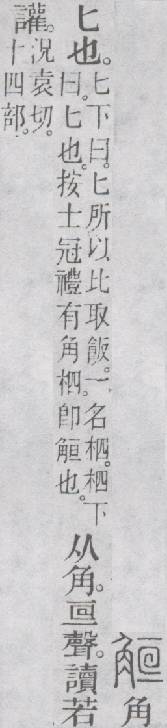 䚙角
匕也。
匕下曰。匕所以比取飯。一名柶。柶下
曰。匕也。按士冠禮有角柶。卽䚙也。
从角。亘聲。讀若
讙。
況袁切。
十四部。